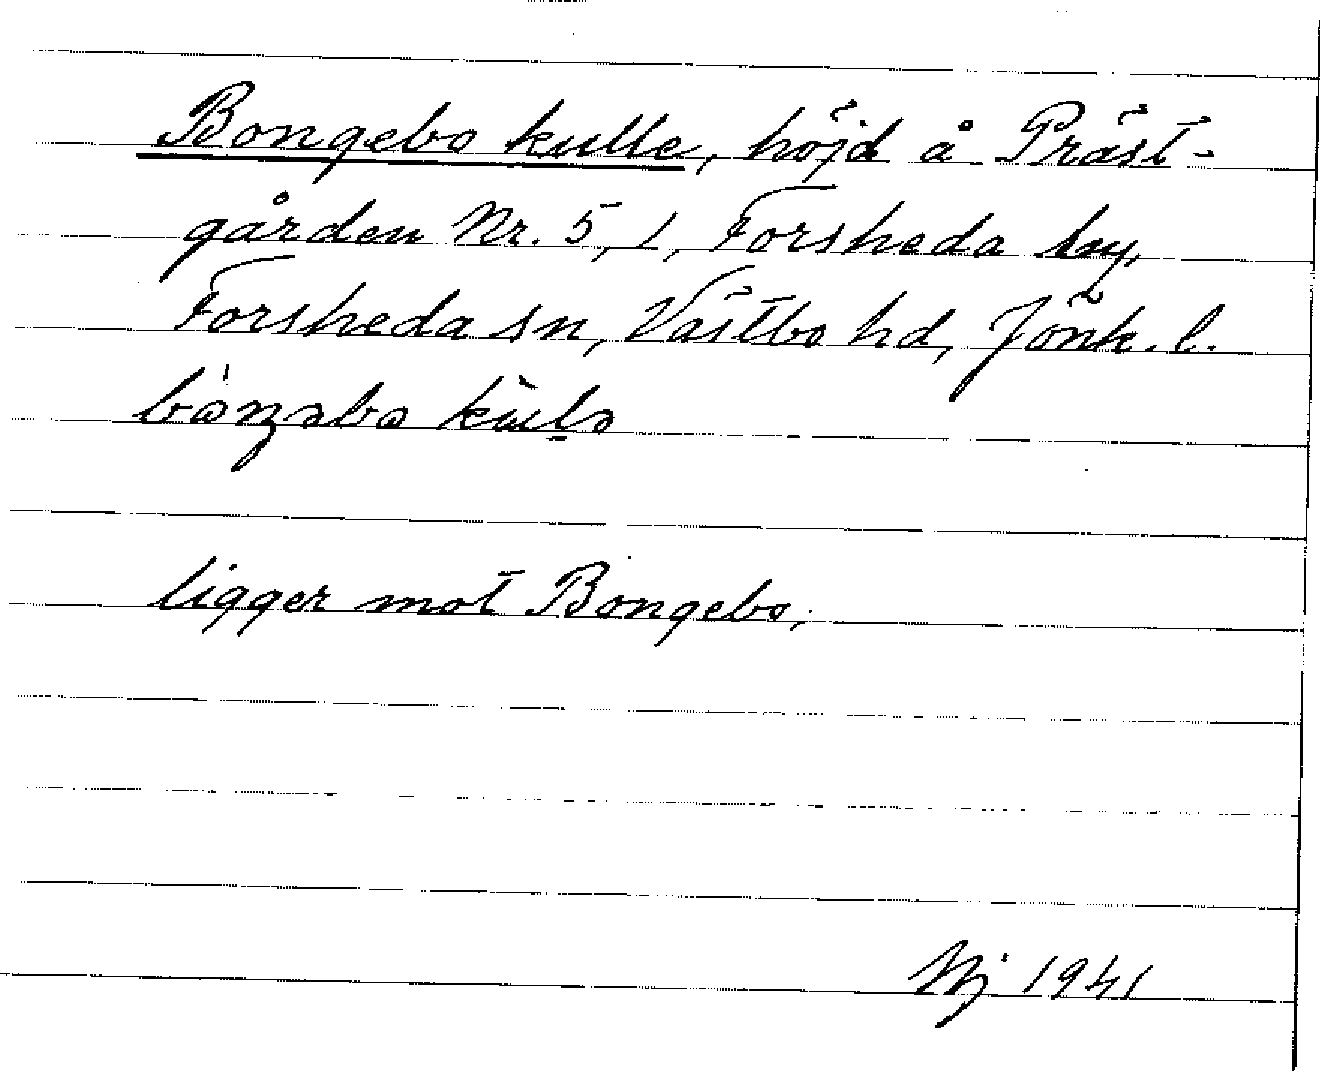 Bongebo kulle, höjd å Präst-
gården Nr. 5,1, Forsheda by,
Forsheda sn, Västbo hd, Jönk. l.
ligger mot Bongebo,
1941